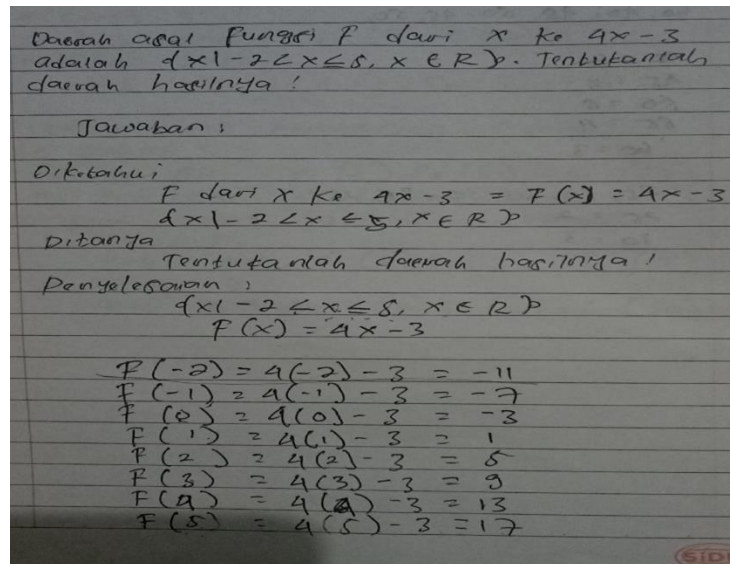 Daerah asal fungsi F dari x ke 4x-3
adalah {x|-2<x≤5, x ∈ R}. Tentukanlah
daerah hasilnya!
Jawaban:
Diketahui;
F dari x ke 4x-3 = F(x) = 4x-3
{x|-2<x≤5, x ∈ R}
Ditanya
Tentukanlah daerah hasilnya!
Penyelesaian;
{x|-2<x≤5, x ∈ R}
F(x) = 4x-3
F(-2) = 4(-2)-3 = -11
F(-1) = 4(-1)-3 = -7
F(0) = 4(0)-3 = -3
F(1) = 4(1)-3 = 1
F(2) = 4(2)-3 = 5
F(3) = 4(3)-3 = 9
F(4) = 4(4)-3 = 13
F(5) = 4(5)-3 = 17